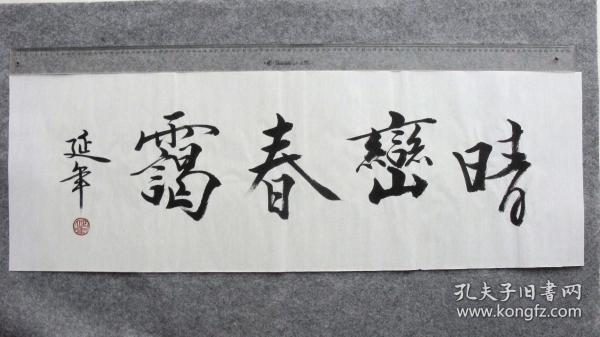 晴巒春靄
延年
孔夫子旧書网
www.kongfz.com